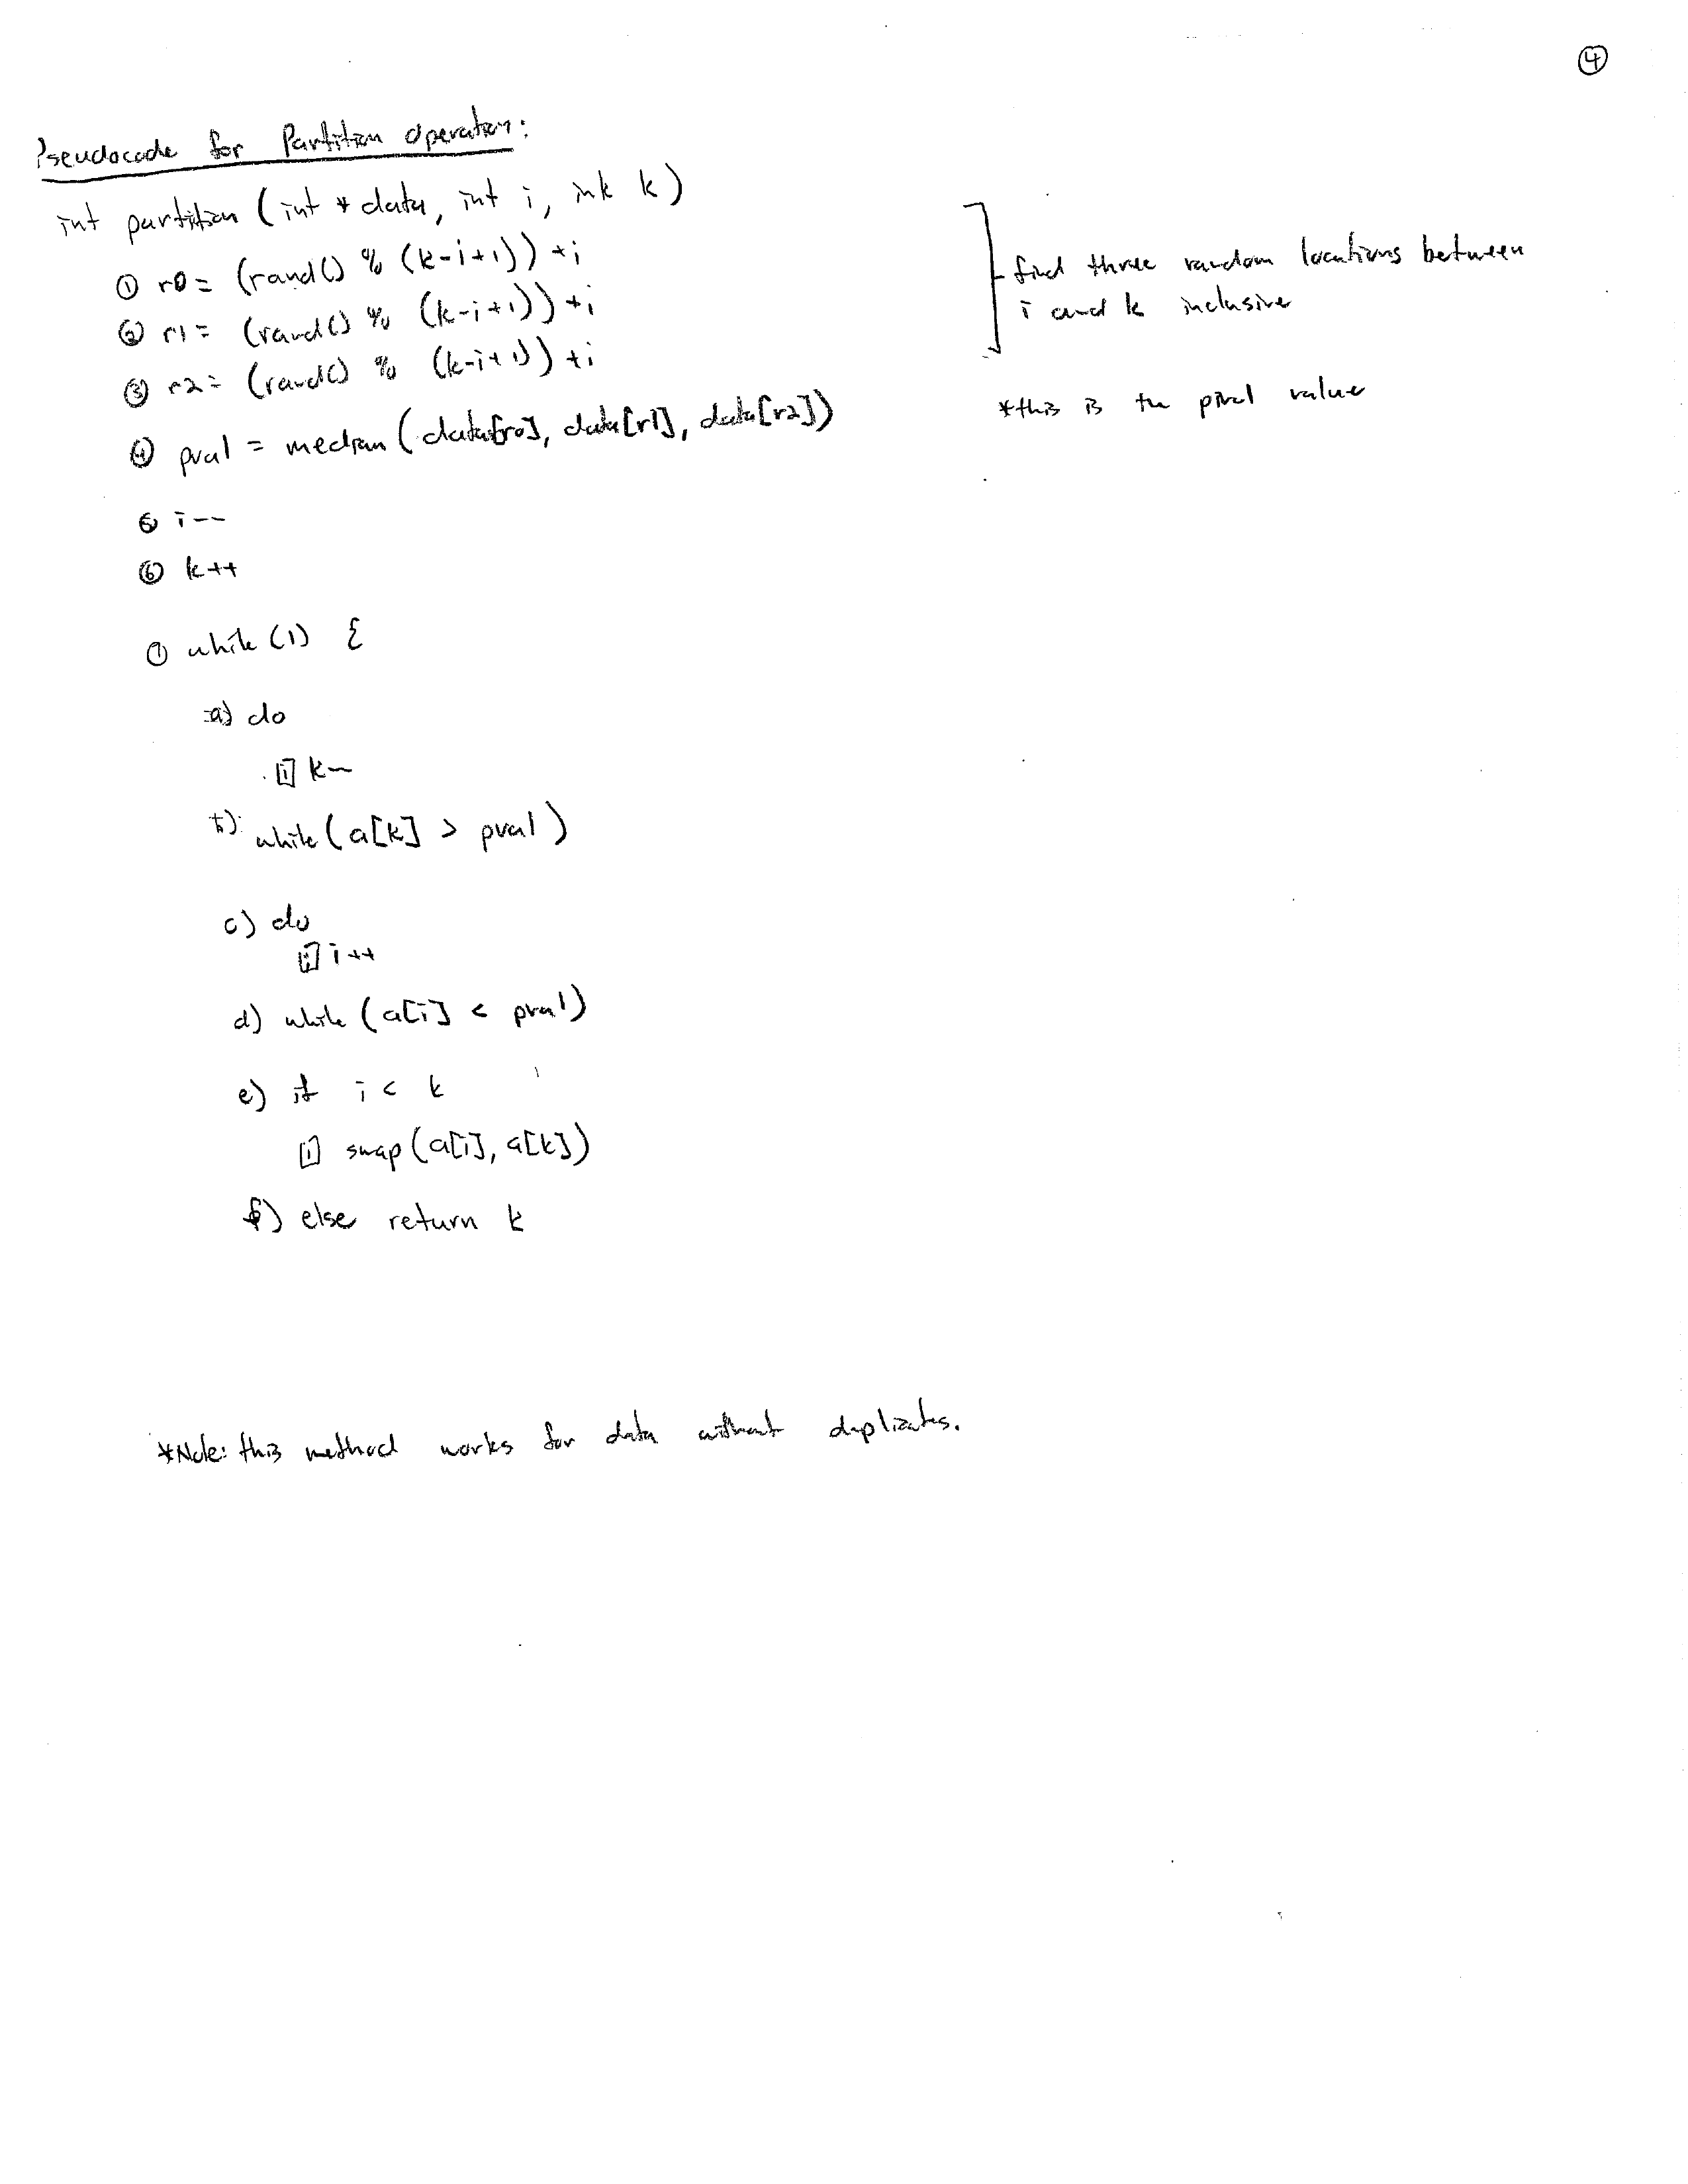 ④
Pseudocode for Partition Operation:
int partition (int * data, int i, ink k)
① r0 = (rand() % (k-i+1)) +i
② r1 = (rand() % (k-i+1)) +i
③ r2 = (rand() % (k-i+1)) +i
find three random locations between
i and k inclusive
④ pval = median (data[r0], data[r1], data[r2])
*this is the pivot value
⑤ i--
⑥ k++
⑦ while (1) {
a) do
i] k--
b) while (a[k] > pval)
c) do
i] i++
d) while (a[i] < pval)
e) if i < k
i] swap (a[i], a[k])
f) else return k
*Note: this method works for data without duplicates.